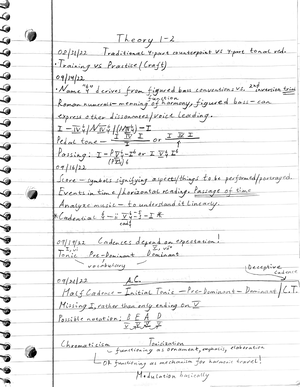 Theory 1-2
09/12/22 Traditional 4-part counterpoint vs 4-part tonal red.
· Training vs Practice/(craft)
09/14/22
· Name "6/4" derives from figured bass conventions vs. 2nd inversion triad
Roman numerals - meaning of harmony, function, figured bass - can
express other dissonances/voice leading.
Pedal tone - I IV I or I IV I
Passing: I - V - I6 or I V I6
09/16/22
Score - symbols signifying aspects/things to be performed/portrayed.
Events in time & horizontal reading. Passage of time
Analyze music - to understand it linearly.
* Cadential
09/19/22 Cadences depend on expectation!
Tonic Pre-Dominant Dominant
vocabulary
Deceptive Cadence
09/21/22 A.C.
Half Cadence - Initial Tonic - Pre-Dominant - Dominant / C.T.
Missing I, rather than only ending on V
Possible notation: B E A D
Chromaticism Tonicization
functioning as ornament, emphasis, elaboration
OR functioning as mechanism for harmonic travel!
Modulation basically